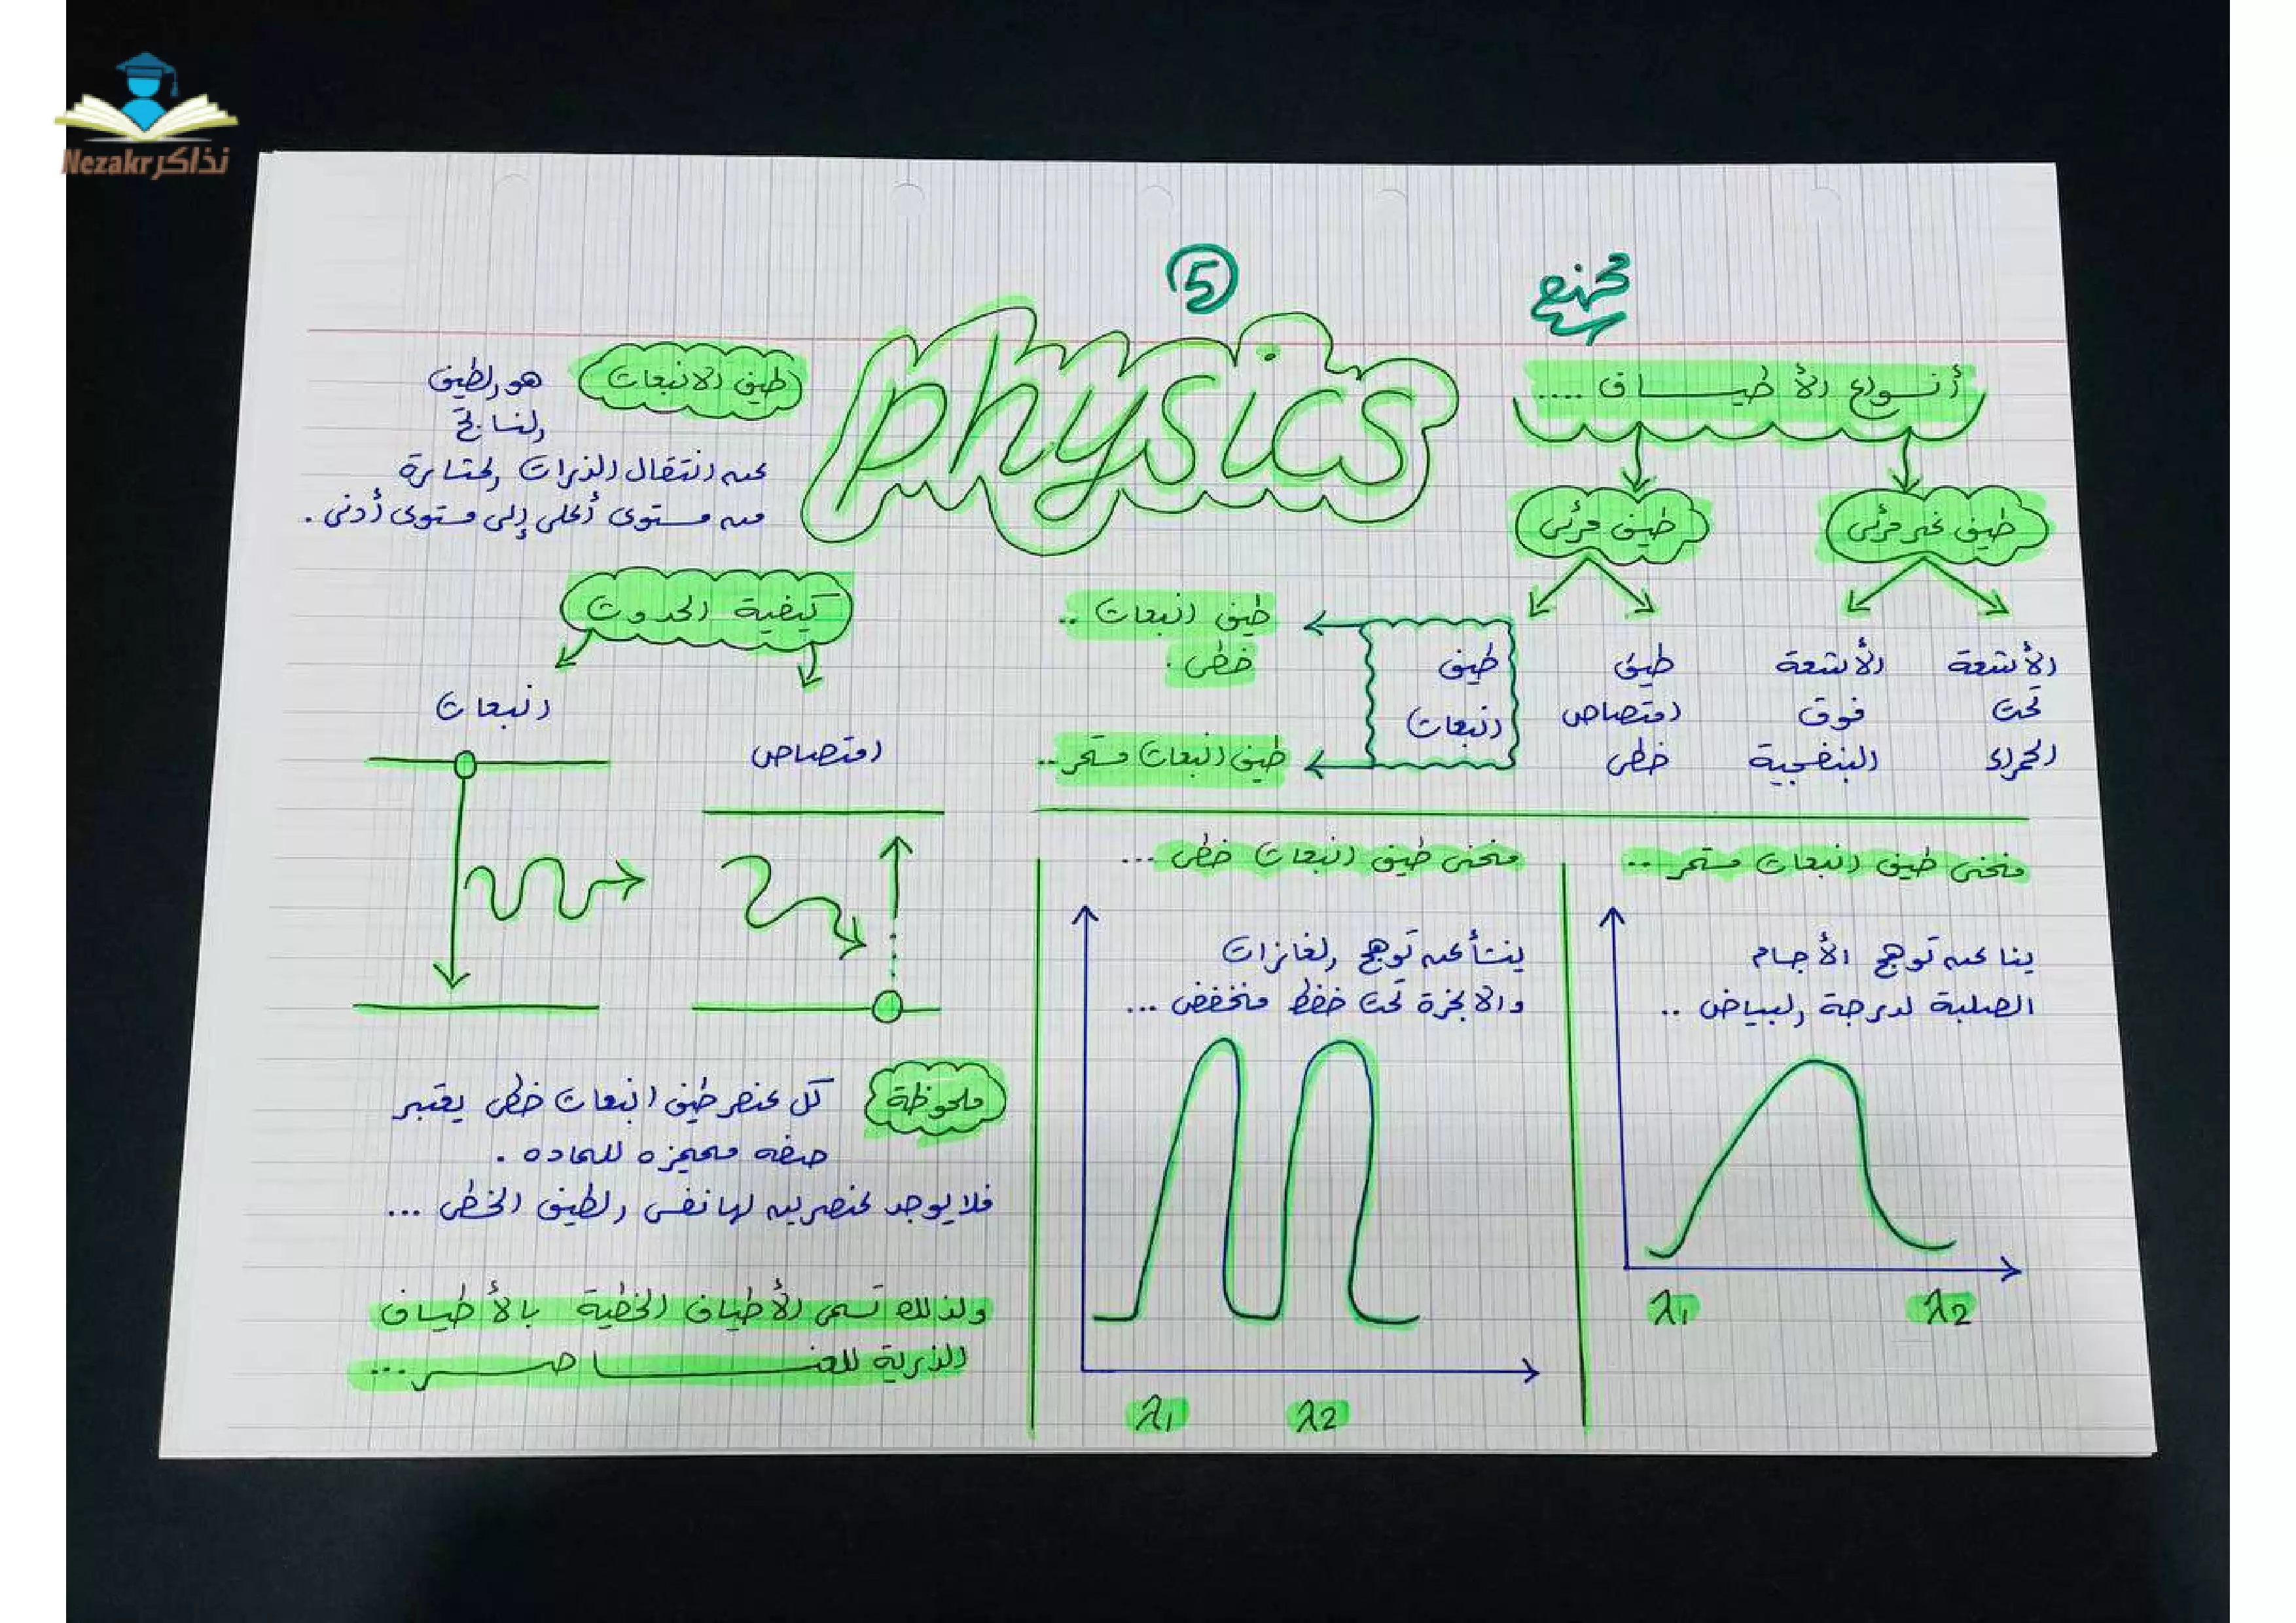 نذاكر Nezakr
5
physics
أنواع الأطياف ....
طيف غير مرئى
طيف مرئى
الأشعة
تحت
الحمراء
الأشعة
فوق
البنفسجية
طيف
امتصاص
خطى
طيف
انبعاث
طيف انبعاث ..
خطى .
طيف انبعاث مستمر ..
منحنى طيف انبعاث مستمر ..
ينشا عن توهج الأجسام
الصلبة لدرجة البياض ..
λ1
λ2
منحنى طيف انبعاث خطى ...
ينشأ عن توهج الغازات
والابخرة تحت ضغط منخفض ...
λ1
λ2
طيف الانبعاث
هو الطيف
الناتج
عن انتقال الذرات المثارة
من مستوى أعلى إلى مستوى أدنى .
كيفية الحدوث
انبعاث
امتصاص
ملحوظة
كل عنصر طيف انبعاث خطى يعتبر
صفه مميزه للماده .
فلا يوجد عنصرين لها نفس الطيف الخطى ...
ولذلك تسمى الأطياف الخطية بالأطياف
الذرية للعناصر ...